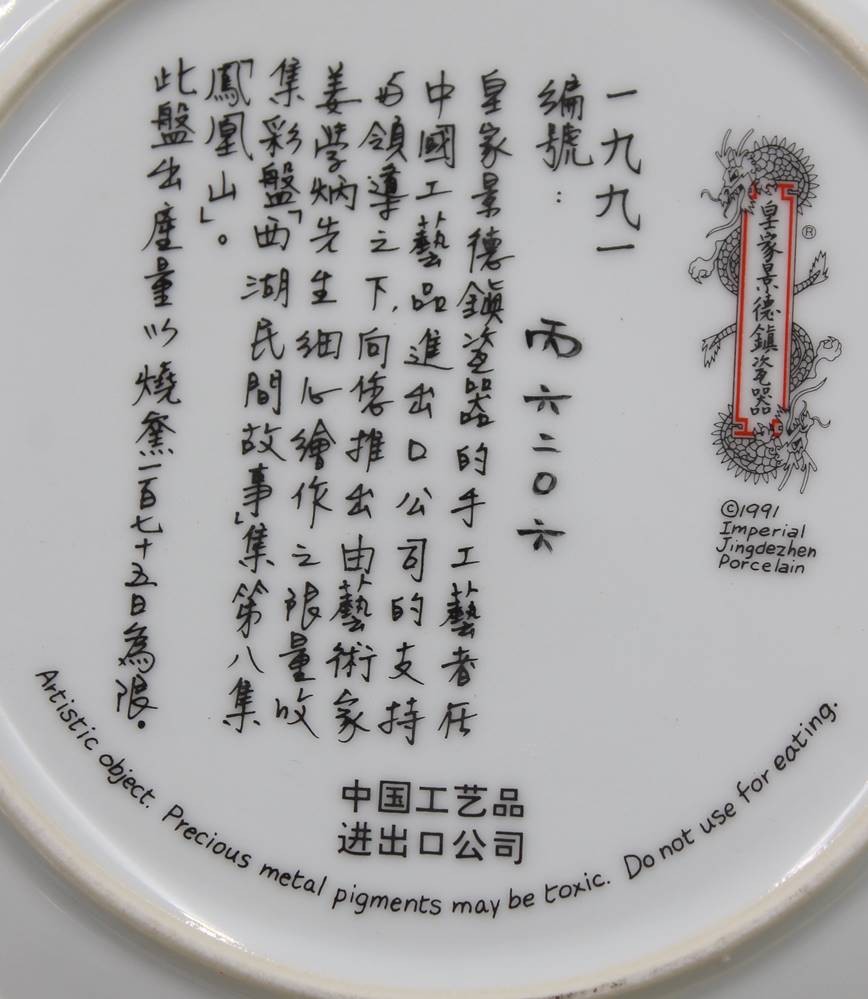 一九九一
編號： 丙六二〇六
皇家景德鎮瓷器的手工藝者在
中國工藝品進出口公司的支持
与領導之下,向您推出由藝術家
姜学炳先生細心繪作之限量收
集彩盤「西湖民間故事」集第八集
「鳳凰山」。
此盤出產量以燒窯一百七十五日為限。
皇家景德鎮瓷器
®
©1991
Imperial
Jingdezhen
Porcelain
中国工艺品
进出口公司
Artistic object. Precious metal pigments may be toxic. Do not use for eating.